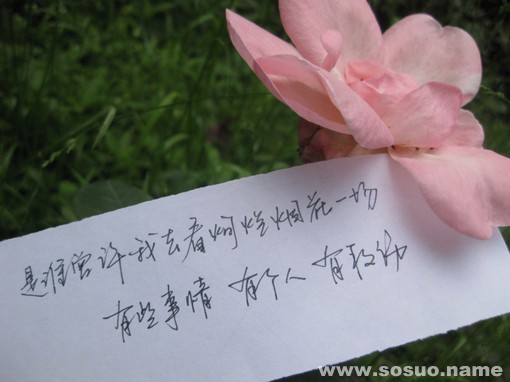 是谁曾许我去看绚烂烟花一场
有些事情 有个人 有
www.sosuo.name